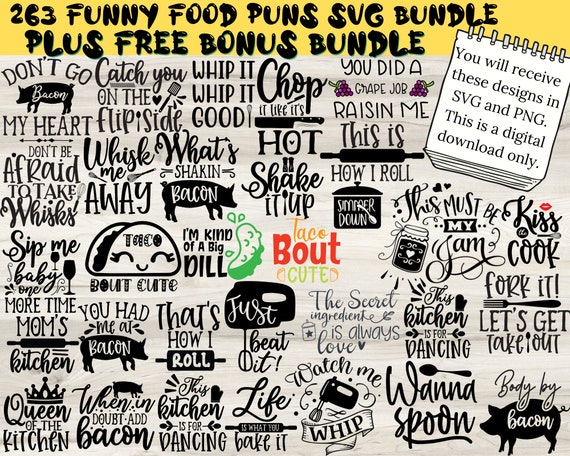 263 FUNNY FOOD PUNS SVG BUNDLE
PLUS FREE BONUS BUNDLE
You will receive
these designs in
SVG and PNG.
This is a digital
download only.
DON'T GO
Bacon
MY HEART
Catch you
ON THE
Flip side
WHIP IT
WHIP IT
GOOD!
Chop
it like it's
HOT
YOU DID A
GRAPE JOB
RAISIN ME
DON'T BE
Afraid
TO TAKE
Whisks
Whisk
me
AWAY
What's
SHAKIN
BACON
Shake
it up
This is
HOW I ROLL
SIMMER
DOWN
This MUST BE
MY
Jam
Kiss
the
COOK
Sip me
baby
one
MORE TIME
TACO
BOUT CUTE
I'M KIND
OF A Big
DILL
Taco
Bout
CUTE
FORK IT!
LET'S GET
takeout
MOM'S
kitchen
YOU HAD
me at
BACON
That's
HOW I
ROLL
Just
beat
it!
The Secret
ingredient
is always
love
This
kitchen
IS FOR
DANCING
Queen
OF THE
KITCHEN
When in
DOUBT-ADD
bacon
This
kitchen
IS FOR
DANCING
Life
IS WHAT YOU
bake it
Watch me
WHIP
Wanna
spoon
Body by
bacon